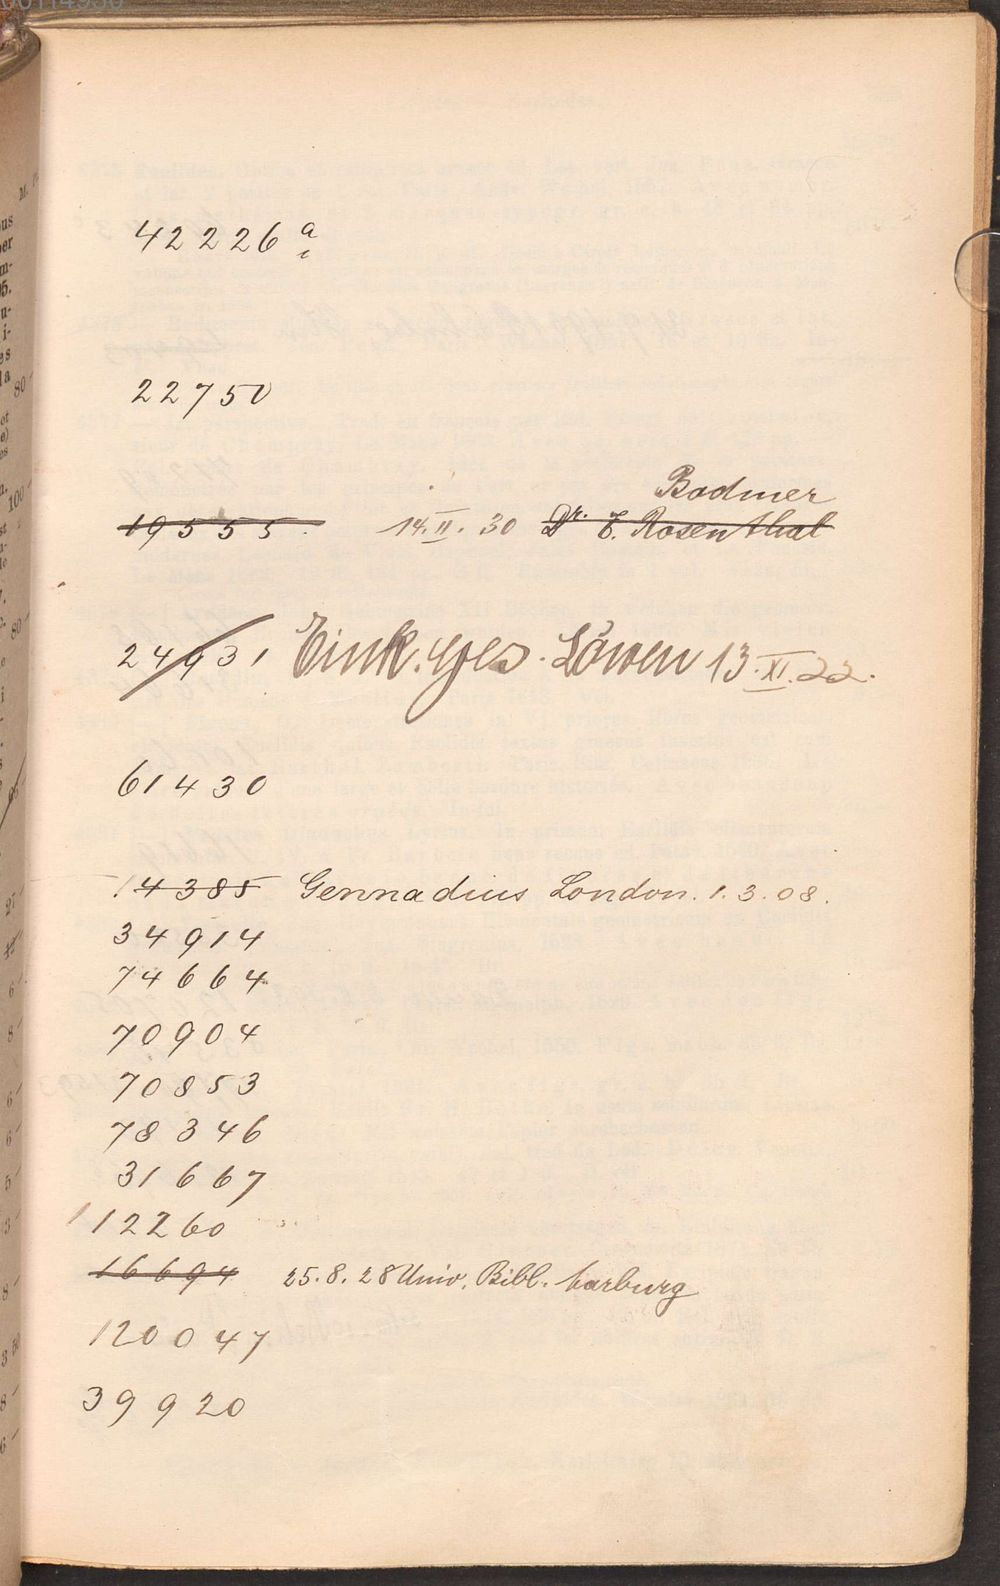 42226 a
22750
Bodmer
19555 14.II.30 Dr. E. Rosenthal
24931 Eink. Ges. Löwen 13.XI.22.
61430
14385 Gennadius London. 1.3.08.
34914
74664
70904
70853
78346
31667
112260
16694 25.8.28 Univ. Bibl. Marburg
120047
39920